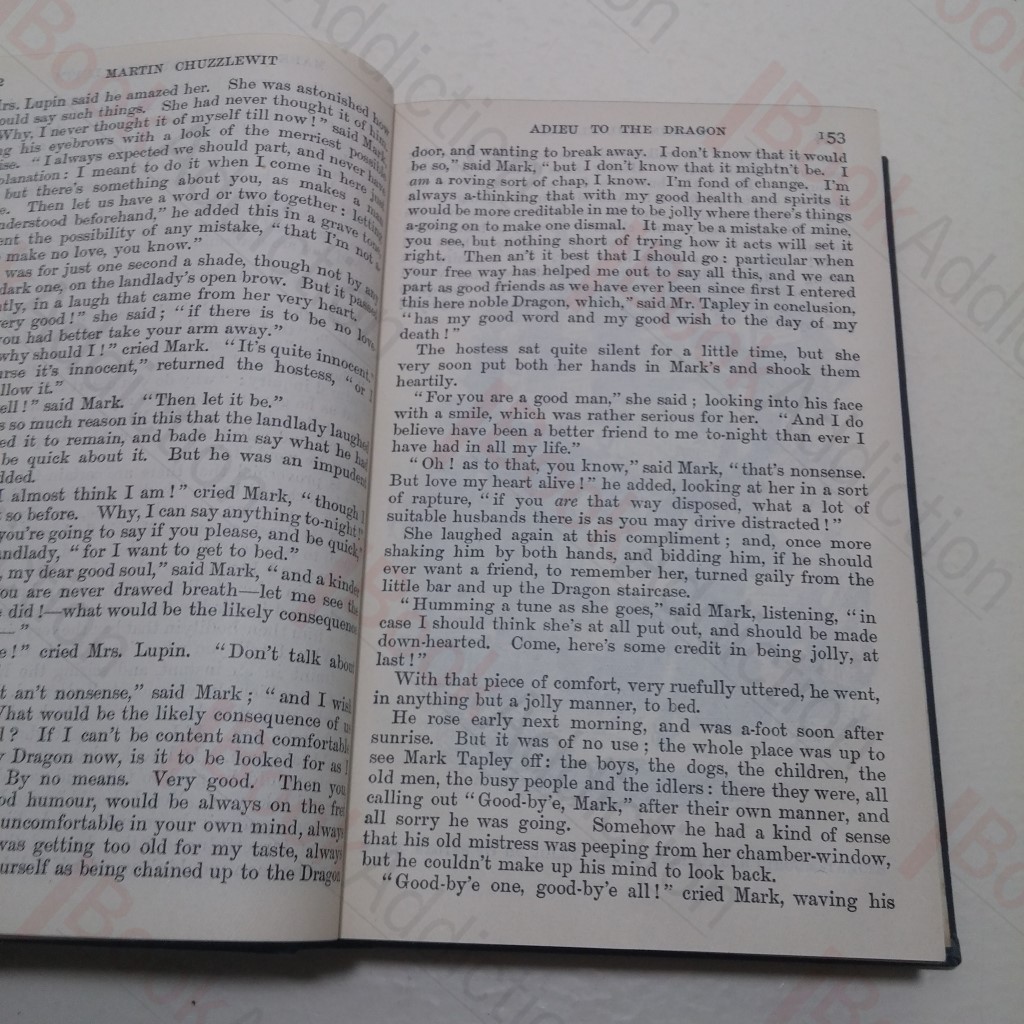 2
MARTIN CHUZZLEWIT
Mrs. Lupin said he amazed her. She was astonished how
could say such things. She had never thought it of him.
Why, I never thought it of myself till now!" said Mark,
his eyebrows with a look of the merriest possible
"I always expected we should part, and never have
explanation: I meant to do it when I come in here just
but there's something about you, as makes a man
Then let us have a word or two together: letting
understood beforehand," he added this in a grave tone
the possibility of any mistake, "that I'm not a
make no love, you know."
was for just one second a shade, though not by any
dark one, on the landlady's open brow. But it passed
in a laugh that came from her very heart.
very good!" she said; "if there is to be no love,
you had better take your arm away."
why should I!" cried Mark. "It's quite innocent."
it's innocent," returned the hostess, "or I
allow it."
said Mark. "Then let it be."
so much reason in this that the landlady laughed
it to remain, and bade him say what he had
be quick about it. But he was an impudent
added.
I almost think I am!" cried Mark, "though I
so before. Why, I can say anything to-night!"
you're going to say if you please, and be quick,"
landlady, "for I want to get to bed."
my dear good soul," said Mark, "and a kinder
you are never drawn breath—let me see the
did!—what would be the likely consequence
—"
cried Mrs. Lupin. "Don't talk about
an't nonsense," said Mark; "and I wish
What would be the likely consequence of us
If I can't be content and comfortable
Dragon now, is it to be looked for as I
By no means. Very good. Then you
humour, would be always on the fret
uncomfortable in your own mind, always
was getting too old for my taste, always
as being chained up to the Dragon
ADIEU TO THE DRAGON 153
door, and wanting to break away. I don't know that it would
be so," said Mark, "but I don't know that it mightn't be. I
am a roving sort of chap, I know. I'm fond of change. I'm
always a-thinking that with my good health and spirits it
would be more creditable in me to be jolly where there's things
a-going on to make one dismal. It may be a mistake of mine,
you see, but nothing short of trying how it acts will set it
right. Then an't it best that I should go: particular when
your free way has helped me out to say all this, and we can
part as good friends as we have ever been since first I entered
this here noble Dragon, which," said Mr. Tapley in conclusion,
"has my good word and my good wish to the day of my
death!"
The hostess sat quite silent for a little time, but she
very soon put both her hands in Mark's and shook them
heartily.
"For you are a good man," she said; looking into his face
with a smile, which was rather serious for her. "And I do
believe have been a better friend to me to-night than ever I
have had in all my life."
"Oh! as to that, you know," said Mark, "that's nonsense.
But love my heart alive!" he added, looking at her in a sort
of rapture, "if you are that way disposed, what a lot of
suitable husbands there is as you may drive distracted!"
She laughed again at this compliment; and, once more
shaking him by both hands, and bidding him, if he should
ever want a friend, to remember her, turned gaily from the
little bar and up the Dragon staircase.
"Humming a tune as she goes," said Mark, listening, "in
case I should think she's at all put out, and should be made
down-hearted. Come, here's some credit in being jolly, at
last!"
With that piece of comfort, very ruefully uttered, he went,
in anything but a jolly manner, to bed.
He rose early next morning, and was a-foot soon after
sunrise. But it was of no use; the whole place was up to
see Mark Tapley off: the boys, the dogs, the children, the
old men, the busy people and the idlers: there they were, all
calling out "Good-by'e, Mark," after their own manner, and
all sorry he was going. Somehow he had a kind of sense
that his old mistress was peeping from her chamber-window,
but he couldn't make up his mind to look back.
"Good-by'e one, good-by'e all!" cried Mark, waving his
BookAddiction